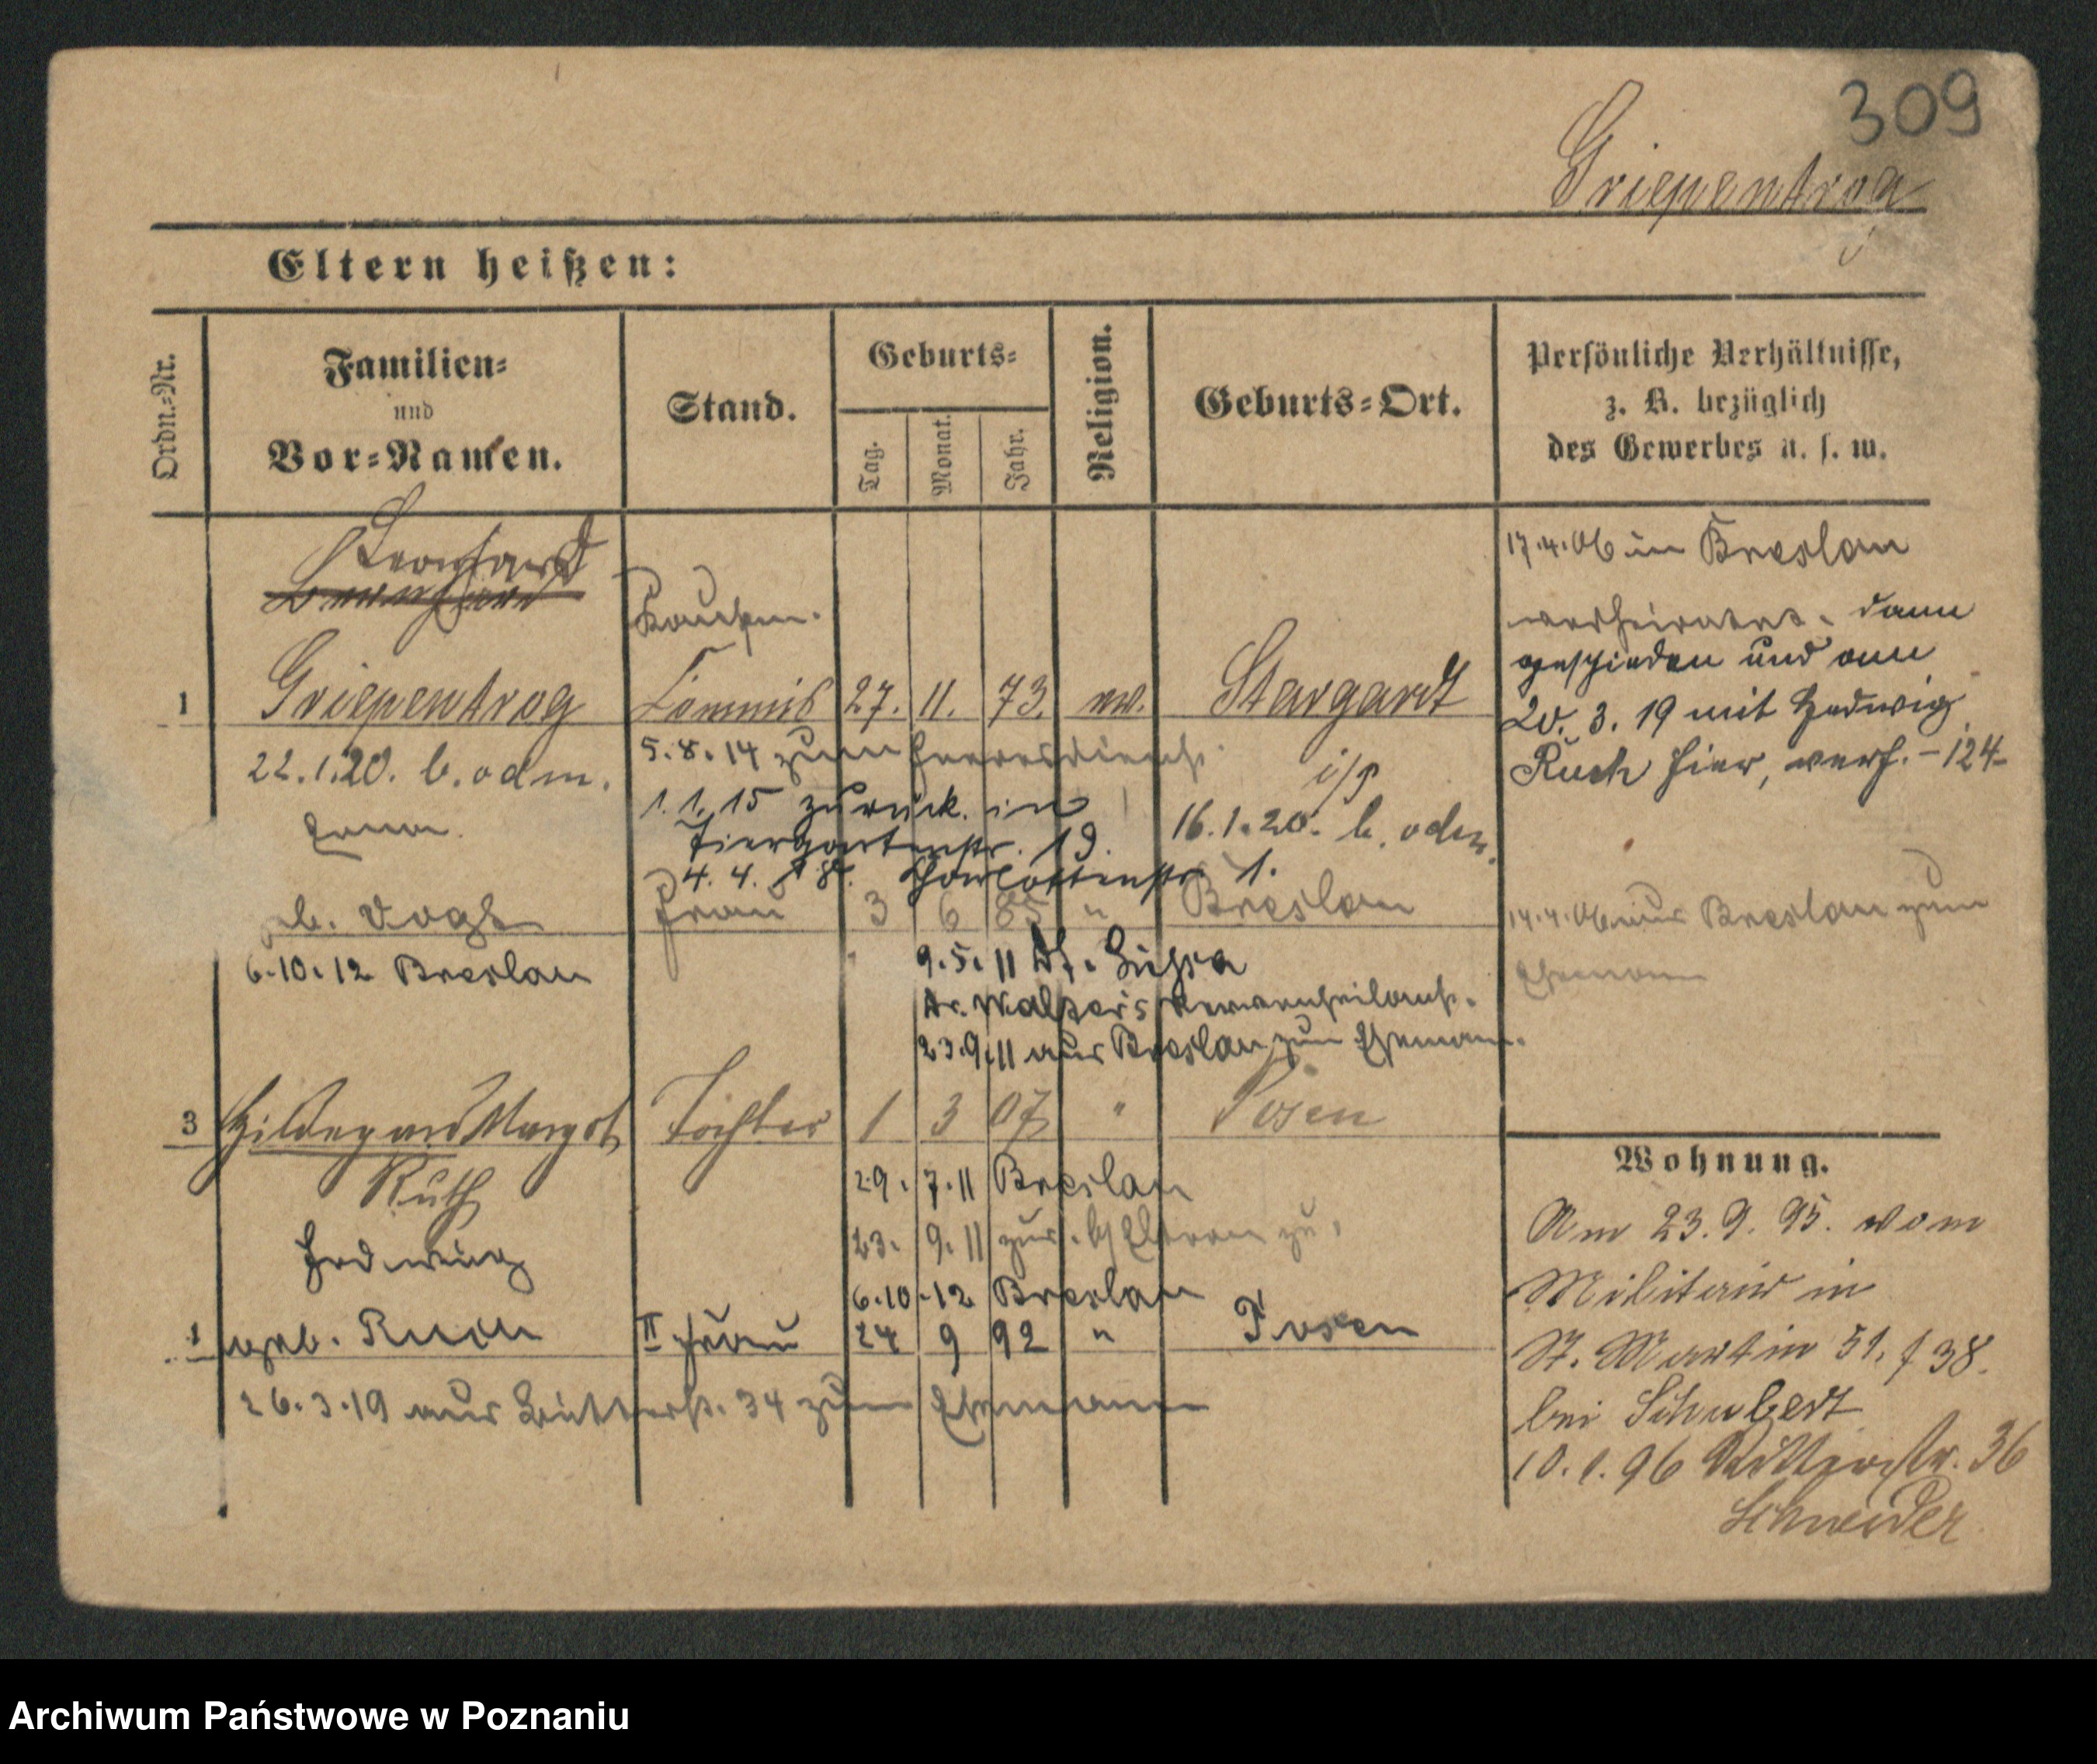 309
Griepentrog
Eltern heißen:
Ordn.-Nr.
Familien-
und
Vor-Namen.
Stand.
Geburts-
Tag.
Monat.
Jahr.
Religion.
Geburts-Ort.
Persönliche Verhältnisse,
z. B. bezüglich
des Gewerbes u. s. w.
Leonhard
Bernhard
Kaufm.
1 Griepentrog Commis 27. 11. 73. ev. Stargardt
i/P
22.1.20. b. odm.
5.8.14 zum Heeresdienst
1.1.15 zurück. in
Tiergartenstr. 19.
4.4.18. Charlottenstr. 1.
16.1.20. b. odm.
17.4.06 in Breslau
verheiratet. dann
geschieden und am
20.3.19 mit Hedwig
Ruch hier, verh. -124-
Erna
gb. Vogt Frau 3 6 85 " Breslau
14.4.06 aus Breslau zum
Ehemann
6.10.12 Breslau
9.5.11 Dt. Lissa
Dr. Nervenheilanst.
23.9.11 aus Breslau zum Ehemann.
3 Hildegard Margot Tochter 1 3 07 " Posen
Ruth
29. 7.11 Breslau
23. 9.11 zu.
6.10.12 Breslau
Hedwig
geb. Ruch II Frau 24 9 92 " Posen
26.3.19 aus Ritterstr. 34 zum Ehemann
Wohnung.
Am 23.9.95. vom
Militair in
St. Martin 51. f 38.
bei Schubert
10.1.96 Ritterstr. 36
Schneider
Archiwum Państwowe w Poznaniu